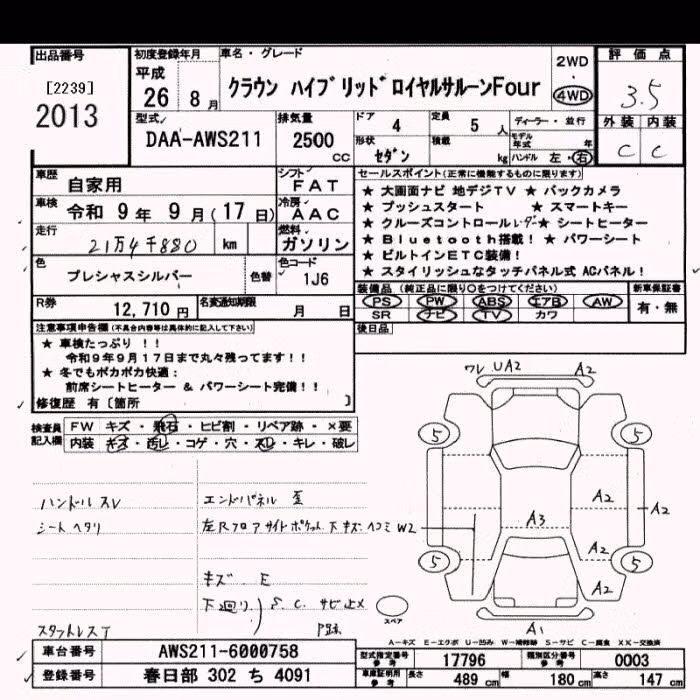 出品番号 初度登録年月 車名・グレード 評価点
[2239] 平成 クラウン ハイブリッドロイヤルサルーンFour 2WD 3.5
2013 26 8月 4WD
型式 排気量 ドア 4 定員 5人 ディーラー・並行 外装 内装
DAA-AWS211 2500cc 形状 セダン 積載 kg モデル年式 年 C C
ハンドル 左・右
車歴 自家用 シフト FAT セールスポイント(正常に機能するものに限ります)
車検 令和 9年 9月(17日) 冷房 AAC ★ 大画面ナビ 地デジTV ★ バックカメラ
★ プッシュスタート ★ スマートキー
走行 21万4千880 km 燃料 ガソリン ★ クルーズコントロールレーダー★ シートヒーター
★ Bluetooth搭載! ★ パワーシート
色 プレシャスシルバー 色替 色コード 1J6 ★ ビルトインETC装備!
★ スタイリッシュなタッチパネル式 ACパネル!
R券 12,710円 名変通知期限 月 日 装備品(純正品に限り○をつけてください) 新車保証書
PS PW ABS エアB AW 有・無
SR ナビ TV カワ
注意事項申告欄(不具合内容等は具体的に記入して下さい) 後日品
★ 車検たっぷり!!
令和9年9月17日まで丸々残ってます!!
★ 冬でもポカポカ快適:
前席シートヒーター & パワーシート完備!!
修復歴 有〔箇所 〕
検査員記入欄 FW キズ・飛石・ヒビ割・リペア跡・×要
内装 キズ・汚レ・コゲ・穴・スレ・キレ・破レ
ワレ UA2 A2
5 5
ハンドルスレ エンドパネル 歪
シートヘタリ 左Rフロアサイドポケット下キズヘコミ W2 A3 A2 A2
A2
キズ・E 5 5
A2
下廻り)S.C.サビ止メ
スペア
スタットレスT A1
A-キズ E-エクボ U-凹み W-補修跡 S-サビ C-腐食 XX-交換済
車台番号 AWS211-6000758 型式指定番号 参考 17796 類別区分番号 参考 0003
登録番号 春日部 302 ち 4091 車庫証明用 参考 長さ 489 cm 幅 180 cm 高さ 147 cm